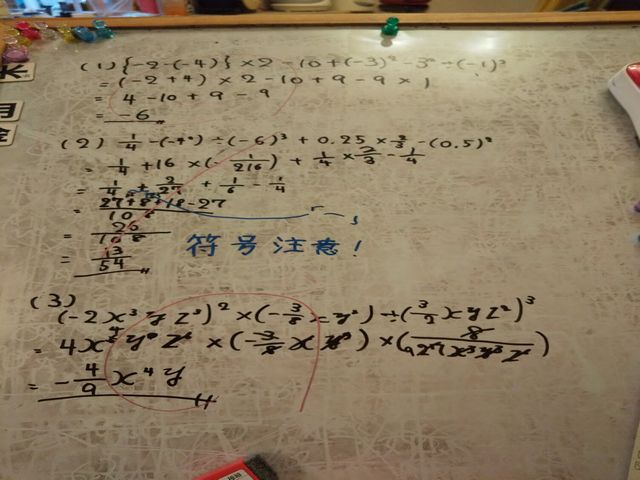 (1) {-2-(-4)} × 2 - 10 + (-3)² - 3² ÷ (-1)³
= (-2+4) × 2 - 10 + 9 - 9 × 1
= 4 - 10 + 9 - 9
= -6
(2) 1/4 - (-4²) ÷ (-6)³ + 0.25 × 2/3 - (0.5)²
= 1/4 + 16 × (-1/216) + 1/4 × 2/3 - 1/4
= 1/4 + 2/27 + 1/6 - 1/4
= 27+8+18-27/108
= 26/108
= 13/54
符号注意!
(3)
(-2x³yz³)² × (-3/8xy²) ÷ (3/2xyz²)³
= -4/9 x⁴y